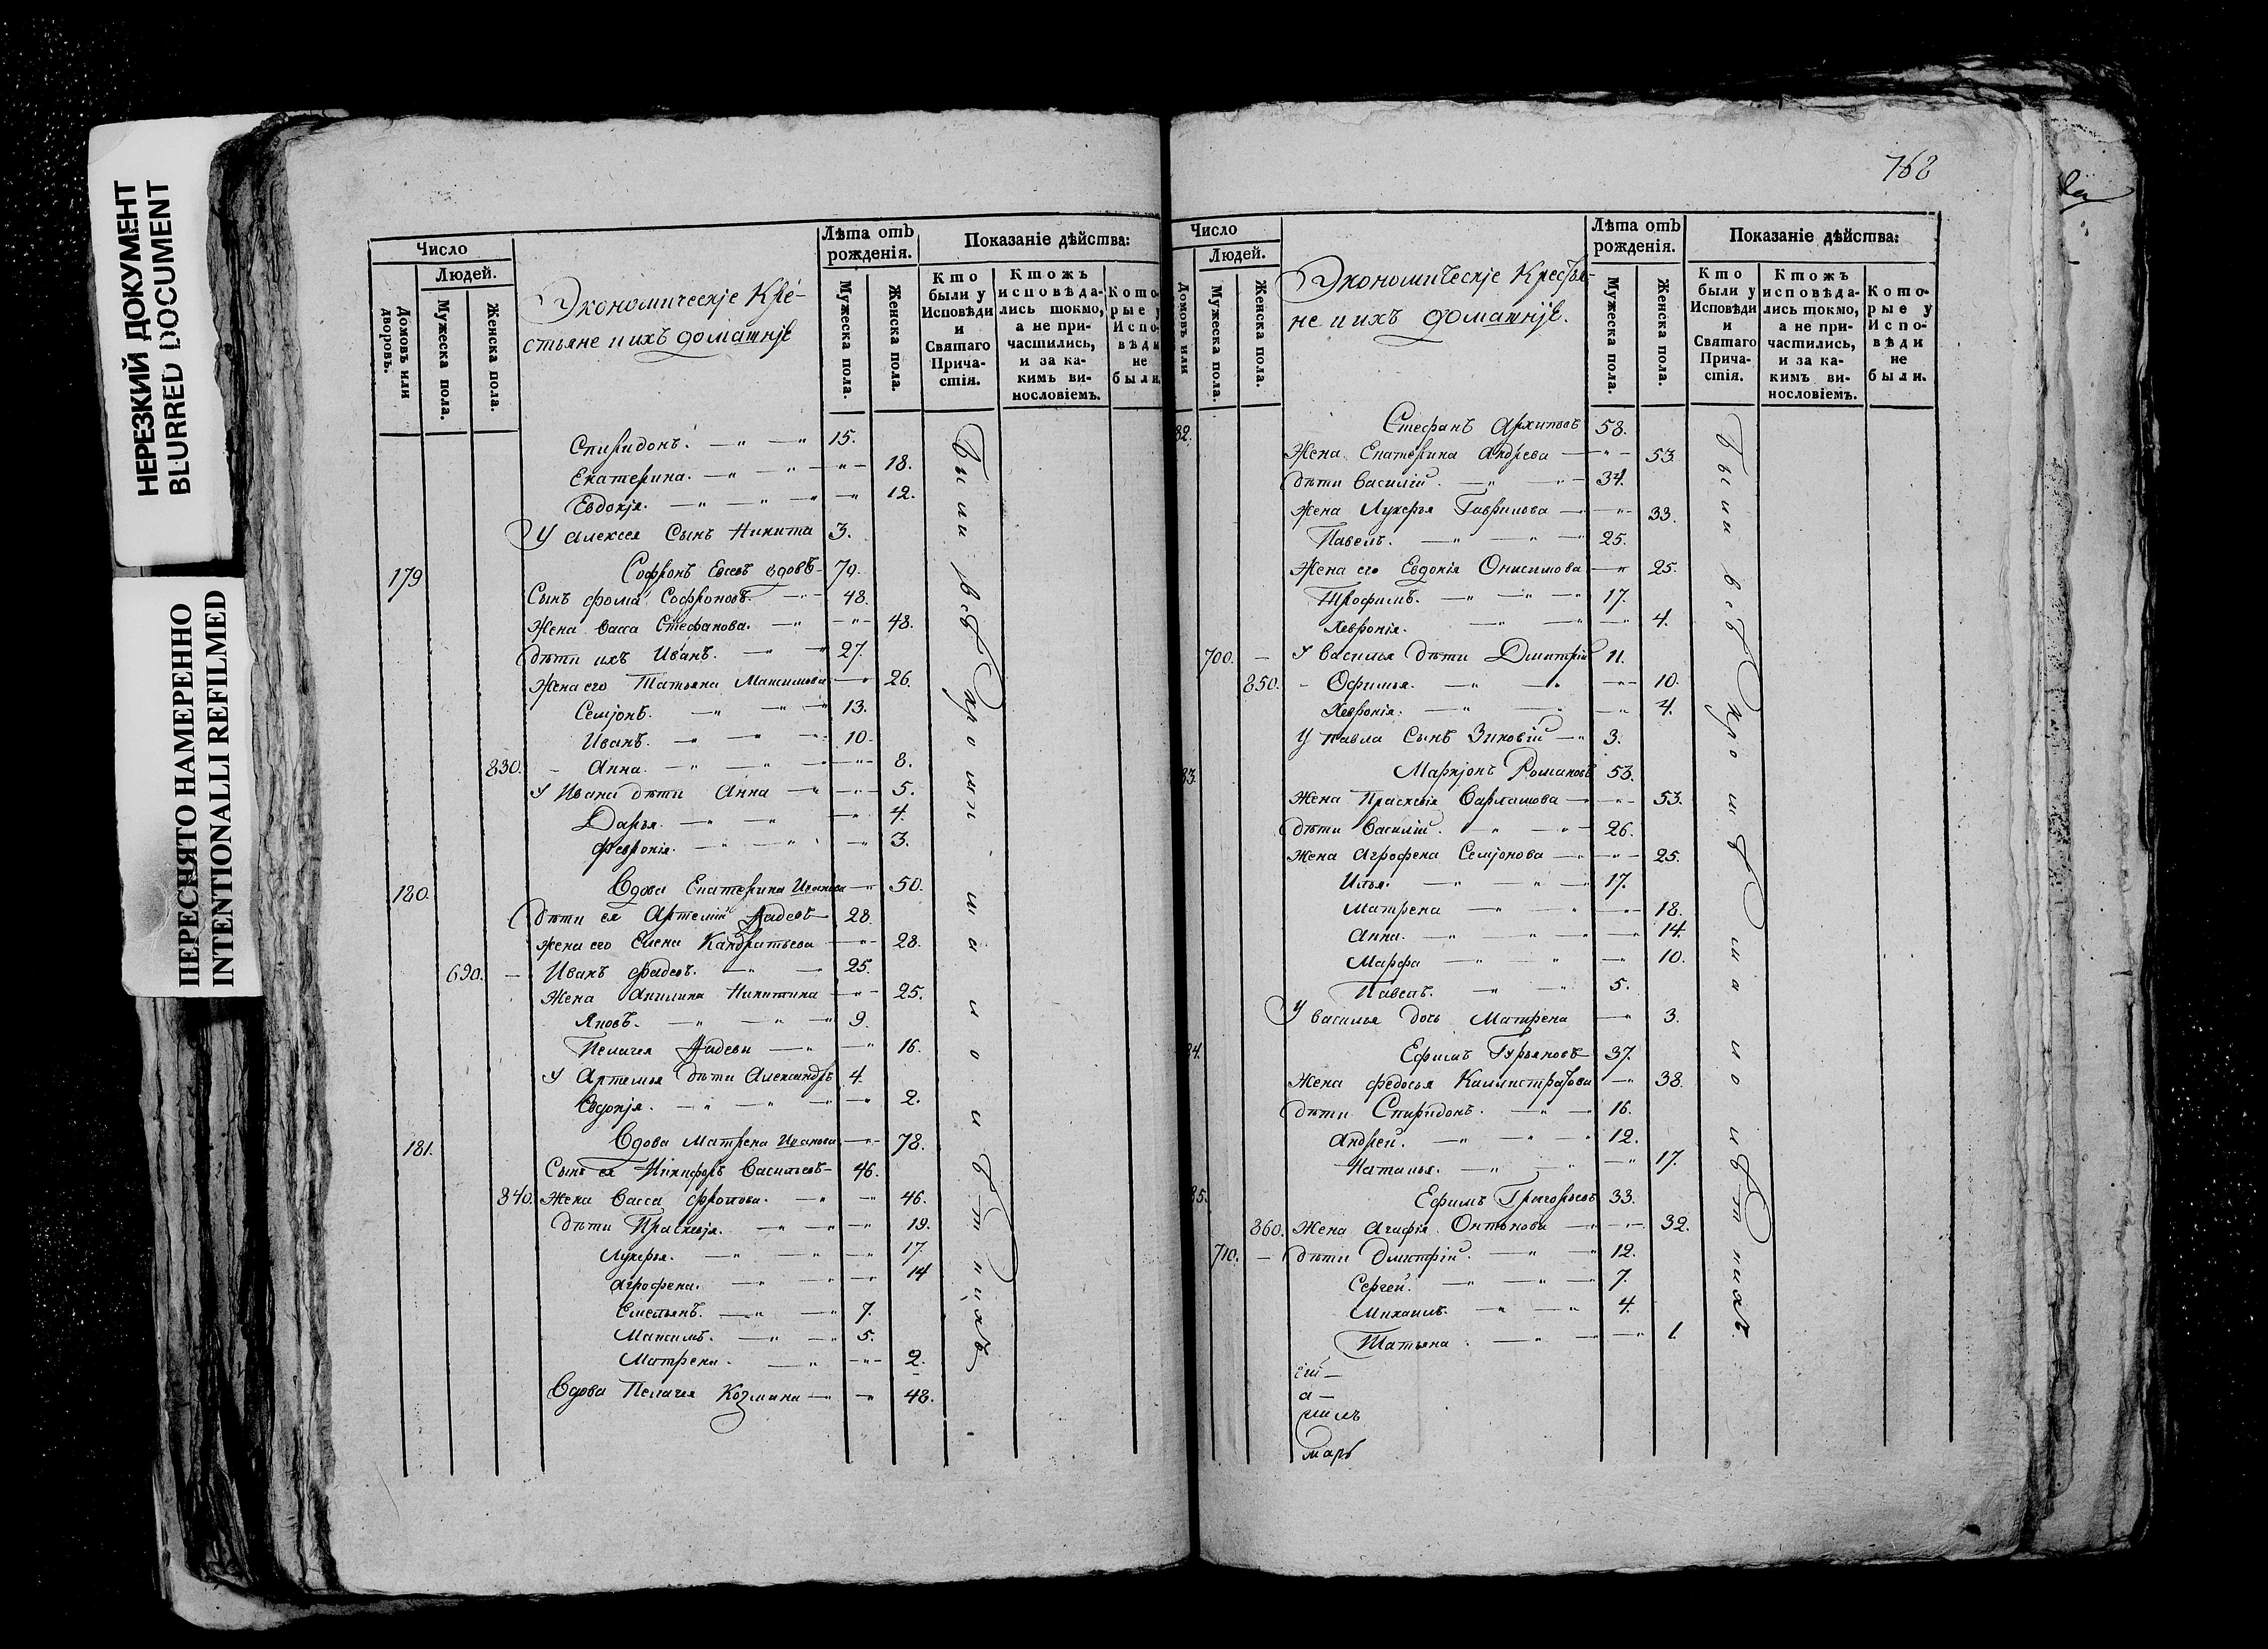 НЕРЕЗКИЙ ДОКУМЕНТ
BLURRED DOCUMENT
ПЕРЕСНЯТО НАМЕРЕННО
INTENTIONALLI REFILMED
Число
Людей.
Домовъ или дворовъ.
Мужеска пола.
Женска пола.
Экономическіе Кре-
стьяне и ихъ домашніе
Лѣта отъ рожденія.
Мужеска пола.
Женска пола.
Показаніе дѣйства:
Кто были у Исповѣди и Святаго Прича-стія.
Ктожъ исповѣда-лись токмо, а не при-частились, и за ка-кимъ ви-нословіемъ.
Кото-рые у Испо-вѣди не были.
Спиридонъ. 15.
Екатерина. 18.
Евдокія. 12.
У Алексея Сынъ Никита 3.
179 Софронъ Евсевъ вдовъ 70.
Сынъ Фома Софроновъ. 48.
Жена Васса Стефанова. 48.
Дѣти ихъ Иванъ. 27.
Жена его Татьяна Максимова 26.
Семіонъ. 13.
Иванъ. 10
830. Анна. 8.
У Ивана дѣти Анна 5.
Дарья. 4.
Февронія. 3.
180. Вдова Екатерина Иванова 50.
Дѣти ея Артемій Фадеевъ 28.
Жена его Елена Кандратьева 28.
690. Иванъ Фадеевъ. 25.
Жена Акилина Никитина 25.
Яковъ. 9.
Пелагея Фадеева 16.
У Артемья дѣти Александръ 4.
Евдокія. 2.
181. Вдова Матрена Иванова 78.
Сынъ ея Никифоръ Васильевъ 46.
840. Жена Васса Фролова. 46.
Дѣти Прасковія. 19.
Лукерья. 17.
Агрофена. 14
Емельянъ. 7.
Максимъ. 5.
Матрена. 2.
Вдова Пелагея Козмина 48.
Были всѣ кромѣ малолѣтнихъ
768
Число
Людей.
Домовъ или
Мужеска пола.
Женска пола.
Экономическіе Крестья-
не и ихъ домашніе.
Лѣта отъ рожденія.
Мужеска пола.
Женска пола.
Показаніе дѣйства:
Кто были у Исповѣди и Святаго Прича-стія.
Ктожъ исповѣда-лись токмо, а не при-частились, и за ка-кимъ ви-нословіемъ.
Кото-рые у Испо-вѣди не были.
82. Стефанъ Архиповъ 58.
Жена Екатерина Андреева 53.
Дѣти Василій. 34.
Жена Лукерья Гаврилова 33.
Павелъ. 25.
Жена его Евдокія Онисимова 25.
Трофимъ. 17.
Хевронія. 4.
700. У Василья дѣти Дмитрій 11.
850. Офимья. 10.
Хевронія. 4.
У Павла Сынъ Зиновій 3.
83. Маркіонъ Романовъ 53.
Жена Прасковія Варламова 53.
Дѣти Василій. 26.
Жена Агрофена Семіонова 25.
Илья. 17.
Матрена 18.
Анна. 14.
Марфа 10.
Павелъ. 5.
У Василья дочь Матрена 3.
84. Ефимъ Гурьяновъ 37.
Жена Федосья Каллистратова 38.
Дѣти Спиридонъ. 16.
Андрей. 12.
Наталья. 17.
85. Ефимъ Григорьевъ 33.
860. Жена Агафія Онтонова 32.
710. Дѣти Дмитрій. 12.
Сергей. 7.
Михаилъ. 4.
Татьяна. 1.
Были всѣ кромѣ малолѣтнихъ.